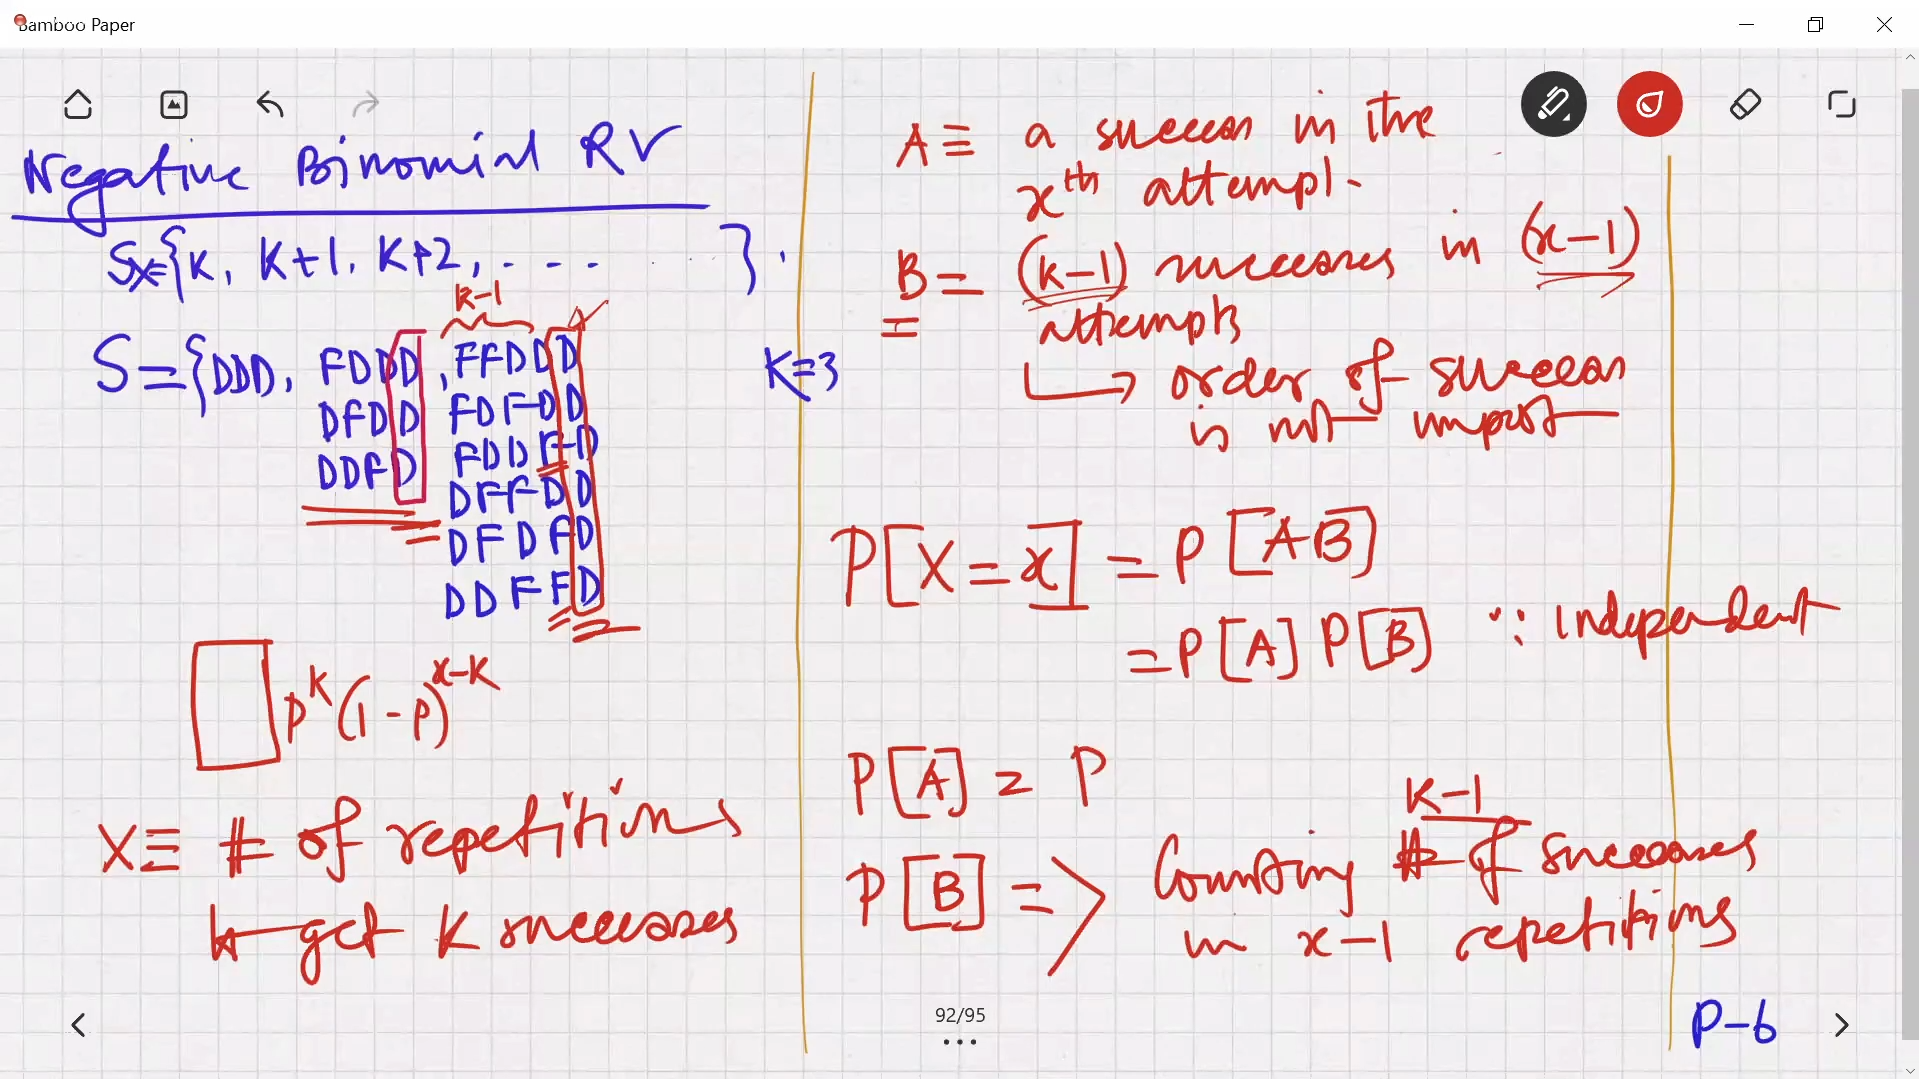 Bamboo Paper
Negative Binomial RV
Sx={K, K+1, K+2, . - - - }.
K-1
S={DDD, FDDD, FFDDD
DFDD FDFDD
DDFD FDDFD
DFFDD
DFDFD
DDFFD
K=3
P^K (1-P)^x-K
X≡ # of repetitions
to get K successes
A≡ a success in the
xth attempt.
B= (K-1) successes in (x-1)
attempts
↳ order of success
is not import
P[X=x] = P[AB]
=P[A] P[B] ∵ independent
P[A] = P
K-1
P[B] => Counting # of successes
in x-1 repetitions
92/95
P-6